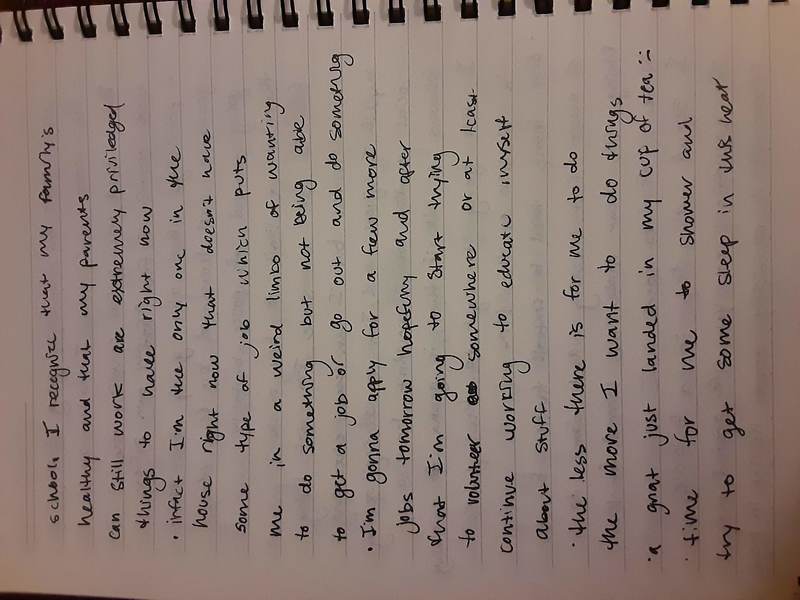 school, I recognize that my family's
healthy and that my parents
can still work are extremely priviledged
things to have right now
• infact I'm the only one in the
house right now that doesn't have
some type of job which puts
me in a weird limbo of wanting
to do something but not being able
to get a job or go out and do something
• I'm gonna apply for a few more
jobs tomorrow hopefully and after
that I'm going to start trying
to volunteer somewhere or at least
continue working to educate myself
about stuff
• the less there is for me to do
the more I want to do things
• a gnat just landed in my cup of tea :(
• time for me to shower and
try to get some sleep in this heat